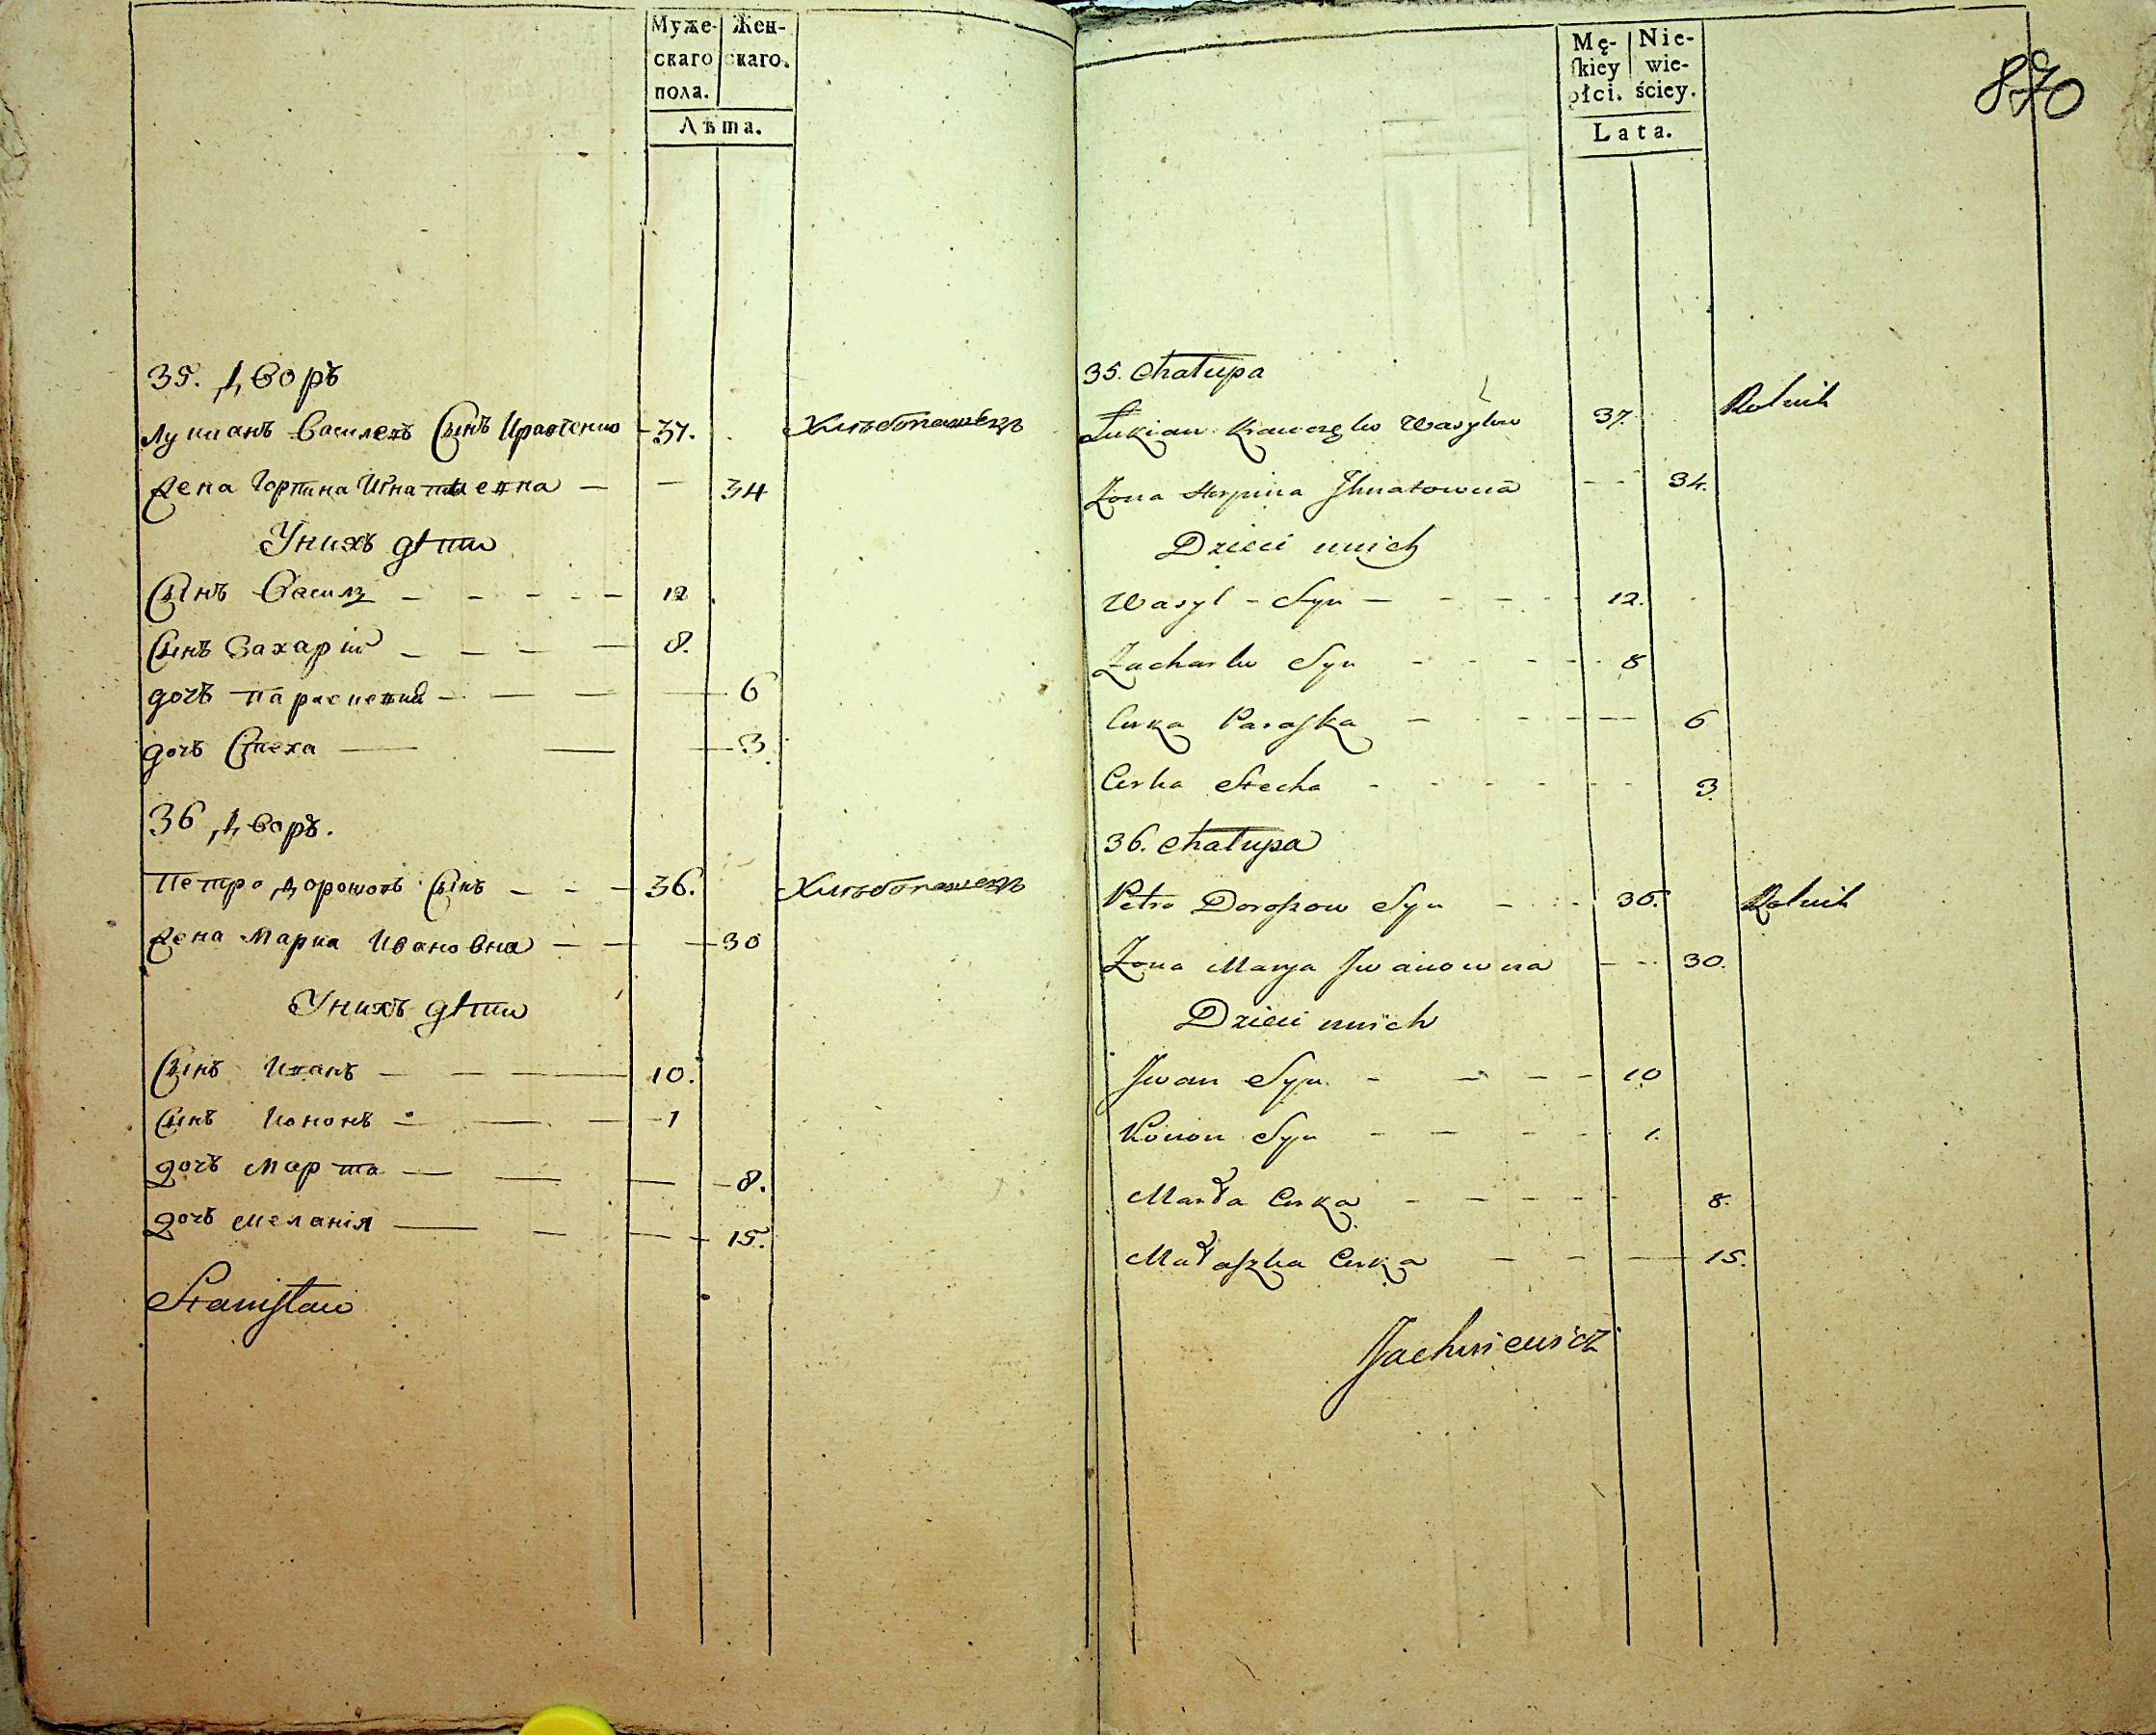 Муже-
скаго
пола.
Жен-
скаго.
Лѣта.
35. Дворъ
Лукианъ Василевъ Сынъ Кравченко 37. Хлѣбопашецъ
Жена Горпина Игнатиевна 34
У нихъ дѣти
Сынъ Василь 12
Сынъ Захарій 8.
дочь Параскевия 6
дочь Стеха 3.
36 Дворъ.
Петро Дорошовъ Сынъ 36. Хлѣбопашецъ
Жена Мария Ивановна 30
У нихъ дѣти
Сынъ Иванъ 10.
Сынъ Кононъ 1
дочь Марта 8.
дочь Меланія 15.
Stanisław
870
Mę-
skiey
płci.
Nie-
wie-
ściey.
Lata.
35. Chałupa
Łukian Krawczęko Wasylow 37. Rolnik
Żona Horpina Ihnatowna 34.
Dzieci u nich
Wasyl - Syn 12.
Zacharko Syn 8
Curka Paraska 6
Curka Stecha 3.
36. Chałupa
Petro Doroszow Syn 36. Rolnik
Żona Marya Jwanowna 30.
Dzieci u nich
Jwan Syn 10
Konon Syn 1.
Marta Curka 8.
Małaszka Curka 15.
Jachniewicz